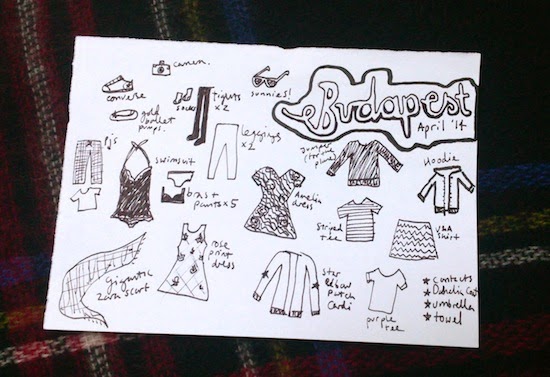 canon.
converse
socks
tights
x 2
sunnies!
Budapest
April '14
gold
ballet
pumps.
pj's
swimsuit
leggings
x1
bras +
pants x 5
jumper
Hoodie
Amelia
dress
Striped
tee
skirt
gigantic
Zara scarf
rose
print
dress
star
elbow
patch
cardi
purple
tee
★ contacts
★ umbrella
★ towel